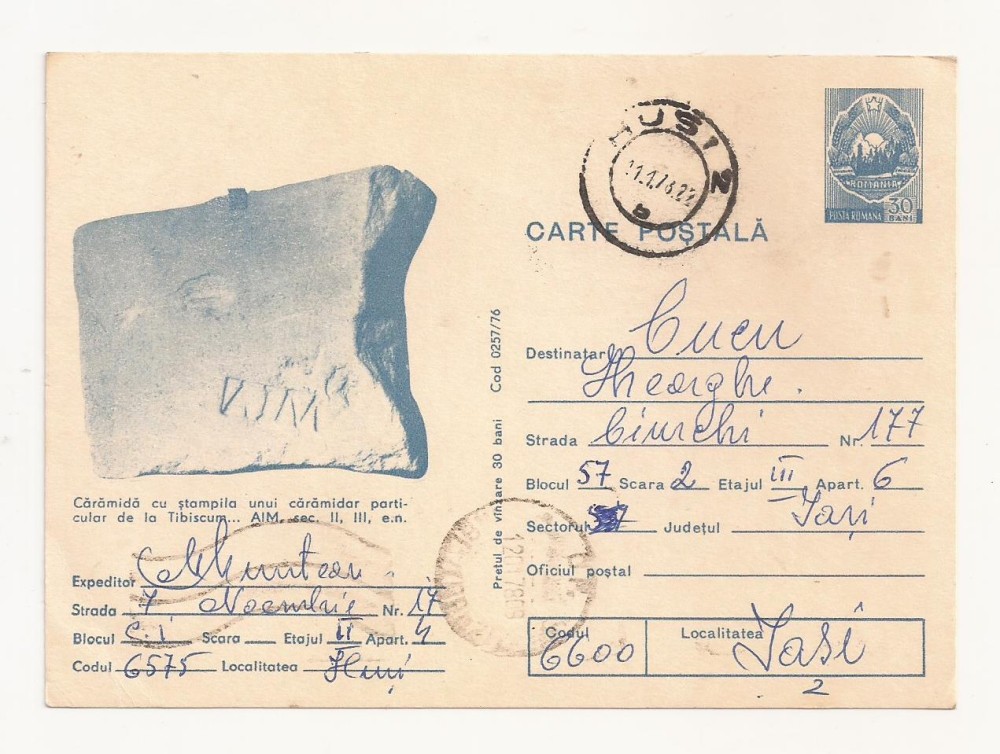 HUȘI 2
11.1.78.22
ROMANIA
POSTA ROMANA 30 BANI
CARTE POȘTALĂ
Cărămidă cu ștampila unui cărămidar parti-
cular de la Tibiscum... AIM, sec. II, III, e.n.
Expeditor Muntean
Strada 7 Noembrie Nr. 17
Blocul C.i Scara Etajul II Apart. 4
Codul 6575 Localitatea Huși
Prețul de vînzare 30 bani Cod 0257/76
Destinatar Cucu
Gheorghe.
Strada Ciurchi Nr. 177
Blocul 57 Scara 2 Etajul III Apart. 6
Sectorul Județul Iași
Oficiul poștal
Codul 6600 Localitatea Iasi
2